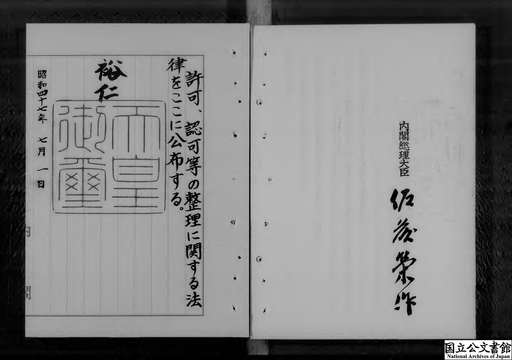 許可、認可等の整理に関する法
律をここに公布する。
裕仁
天皇
御璽
昭和四十七年 七月 一日
内閣
内閣総理大臣
佐藤榮作
国立公文書館
National Archives of Japan